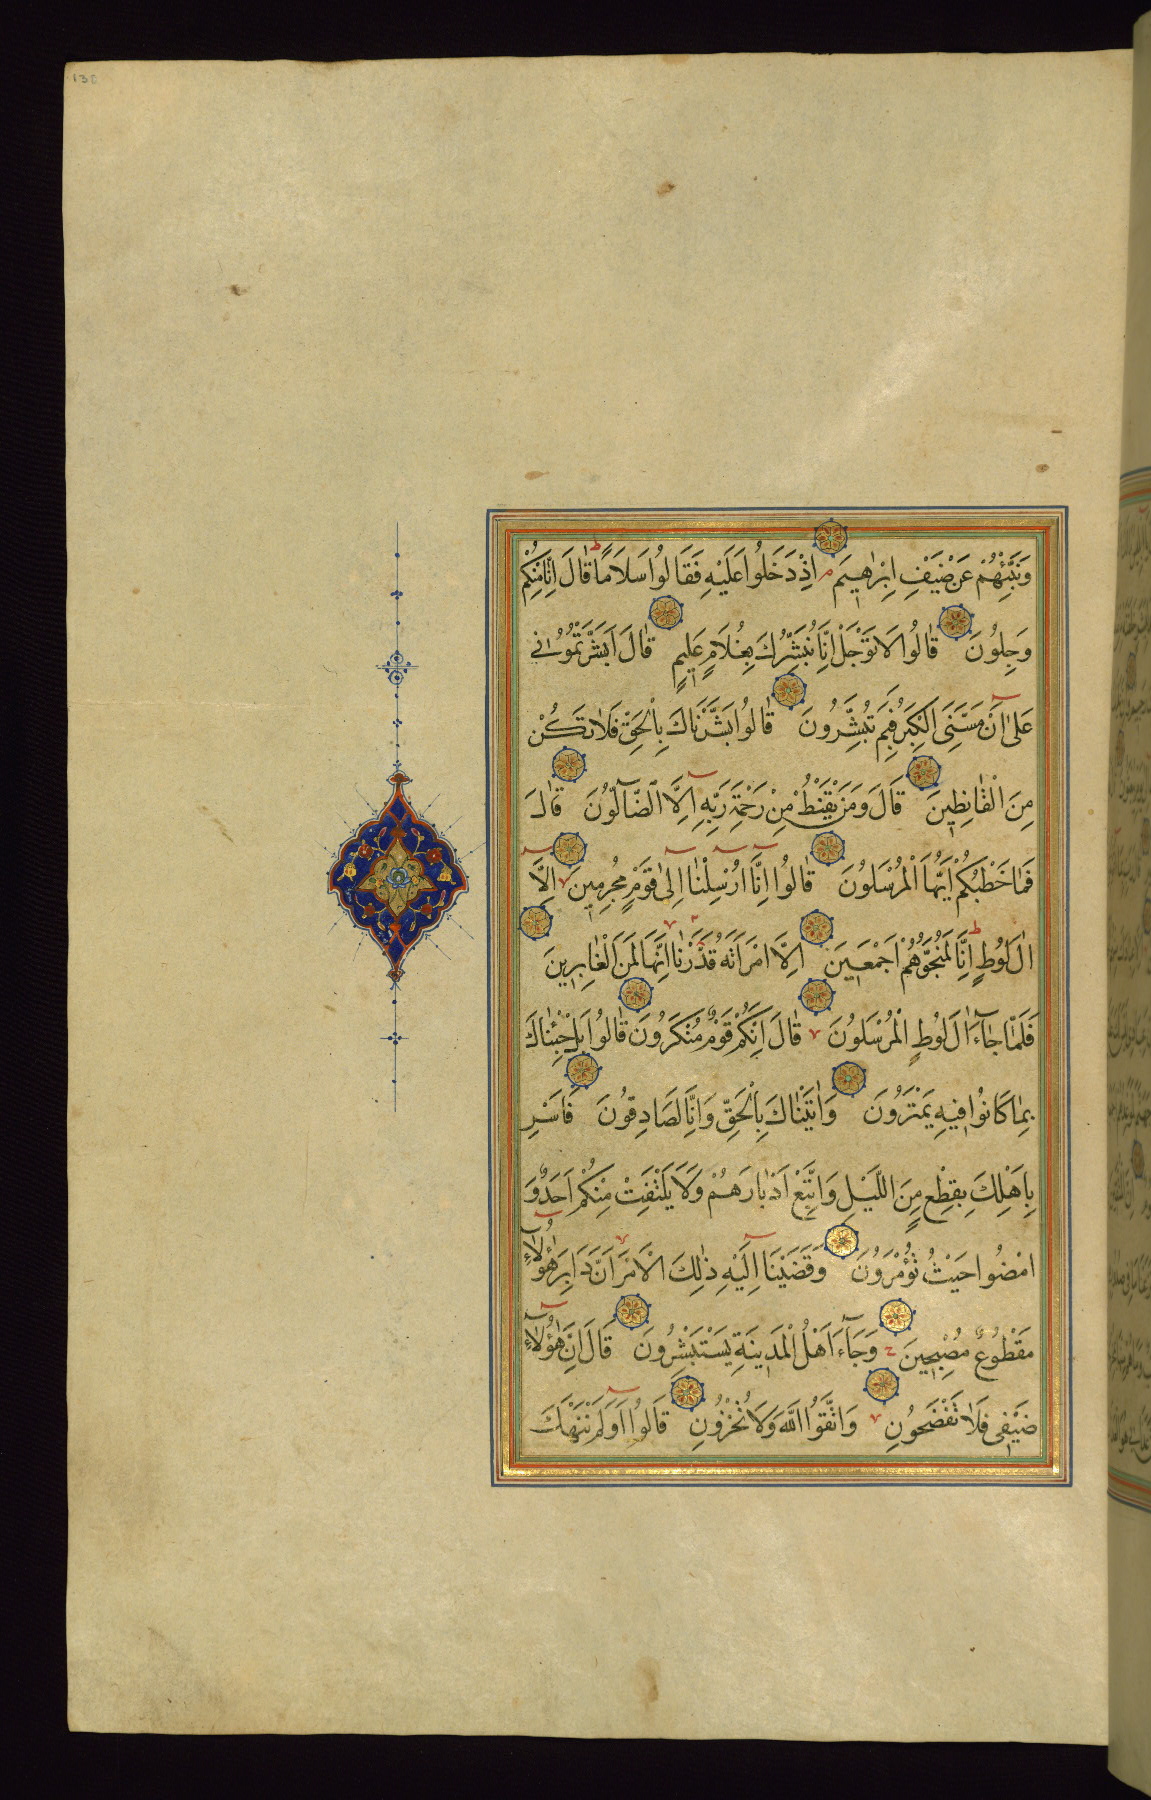 وَنَبِّئْهُمْ عَنْ ضَيْفِ اِبْرٰهيمَ م اِذْ دَخَلُوا عَلَيْهِ فَقَالُوا سَلَامًا ط قَالَ اِنَّا مِنْكُمْ
وَجِلُونَ قَالُوا لَا تَوْجَلْ اِنَّا نُبَشِّرُكَ بِغُلَامٍ عَليمٍ قَالَ اَبَشَّرْتُمُونى
عَلٰى اَنْ مَسَّنِىَ الْكِبَرُ فَبِمَ تُبَشِّرُونَ قَالُوا بَشَّرْنَاكَ بِالْحَقِّ فَلَا تَكُنْ
مِنَ الْقَانِطينَ قَالَ وَمَنْ يَقْنَطُ مِنْ رَحْمَةِ رَبِّهِ اِلَّا الضَّآلُّونَ قَالَ
فَمَا خَطْبُكُمْ اَيُّهَا الْمُرْسَلُونَ قَالُوا اِنَّا اُرْسِلْنَا اِلٰى قَوْمٍ مُجْرِمينَ اِلَّا
اٰلَ لُوطٍ ط اِنَّا لَمُنَجُّوهُمْ اَجْمَعينَ اِلَّا امْرَاَتَهُ قَدَّرْنَا اِنَّهَا لَمِنَ الْغَابِرينَ
فَلَمَّا جَآءَ اٰلَ لُوطٍ الْمُرْسَلُونَ قَالَ اِنَّكُمْ قَوْمٌ مُنْكَرُونَ قَالُوا بَلْ جِئْنَاكَ
بِمَا كَانُوا فيهِ يَمْتَرُونَ وَاَتَيْنَاكَ بِالْحَقِّ وَاِنَّا لَصَادِقُونَ فَاَسْرِ
بِاَهْلِكَ بِقِطْعٍ مِنَ اللَّيْلِ وَاتَّبِعْ اَدْبَارَهُمْ وَلَا يَلْتَفِتْ مِنْكُمْ اَحَدٌ وَ
امْضُوا حَيْثُ تُؤْمَرُونَ وَقَضَيْنَا اِلَيْهِ ذٰلِكَ الْاَمْرَ اَنَّ دَابِرَ هٰؤُلَآءِ
مَقْطُوعٌ مُصْبِحينَ وَجَآءَ اَهْلُ الْمَدينَةِ يَسْتَبْشِرُونَ قَالَ اِنَّ هٰؤُلَآءِ
ضَيْفى فَلَا تَفْضَحُونِ وَاتَّقُوا اللّٰهَ وَلَا تُخْزُونِ قَالُوا اَوَلَمْ نَنْهَكَ